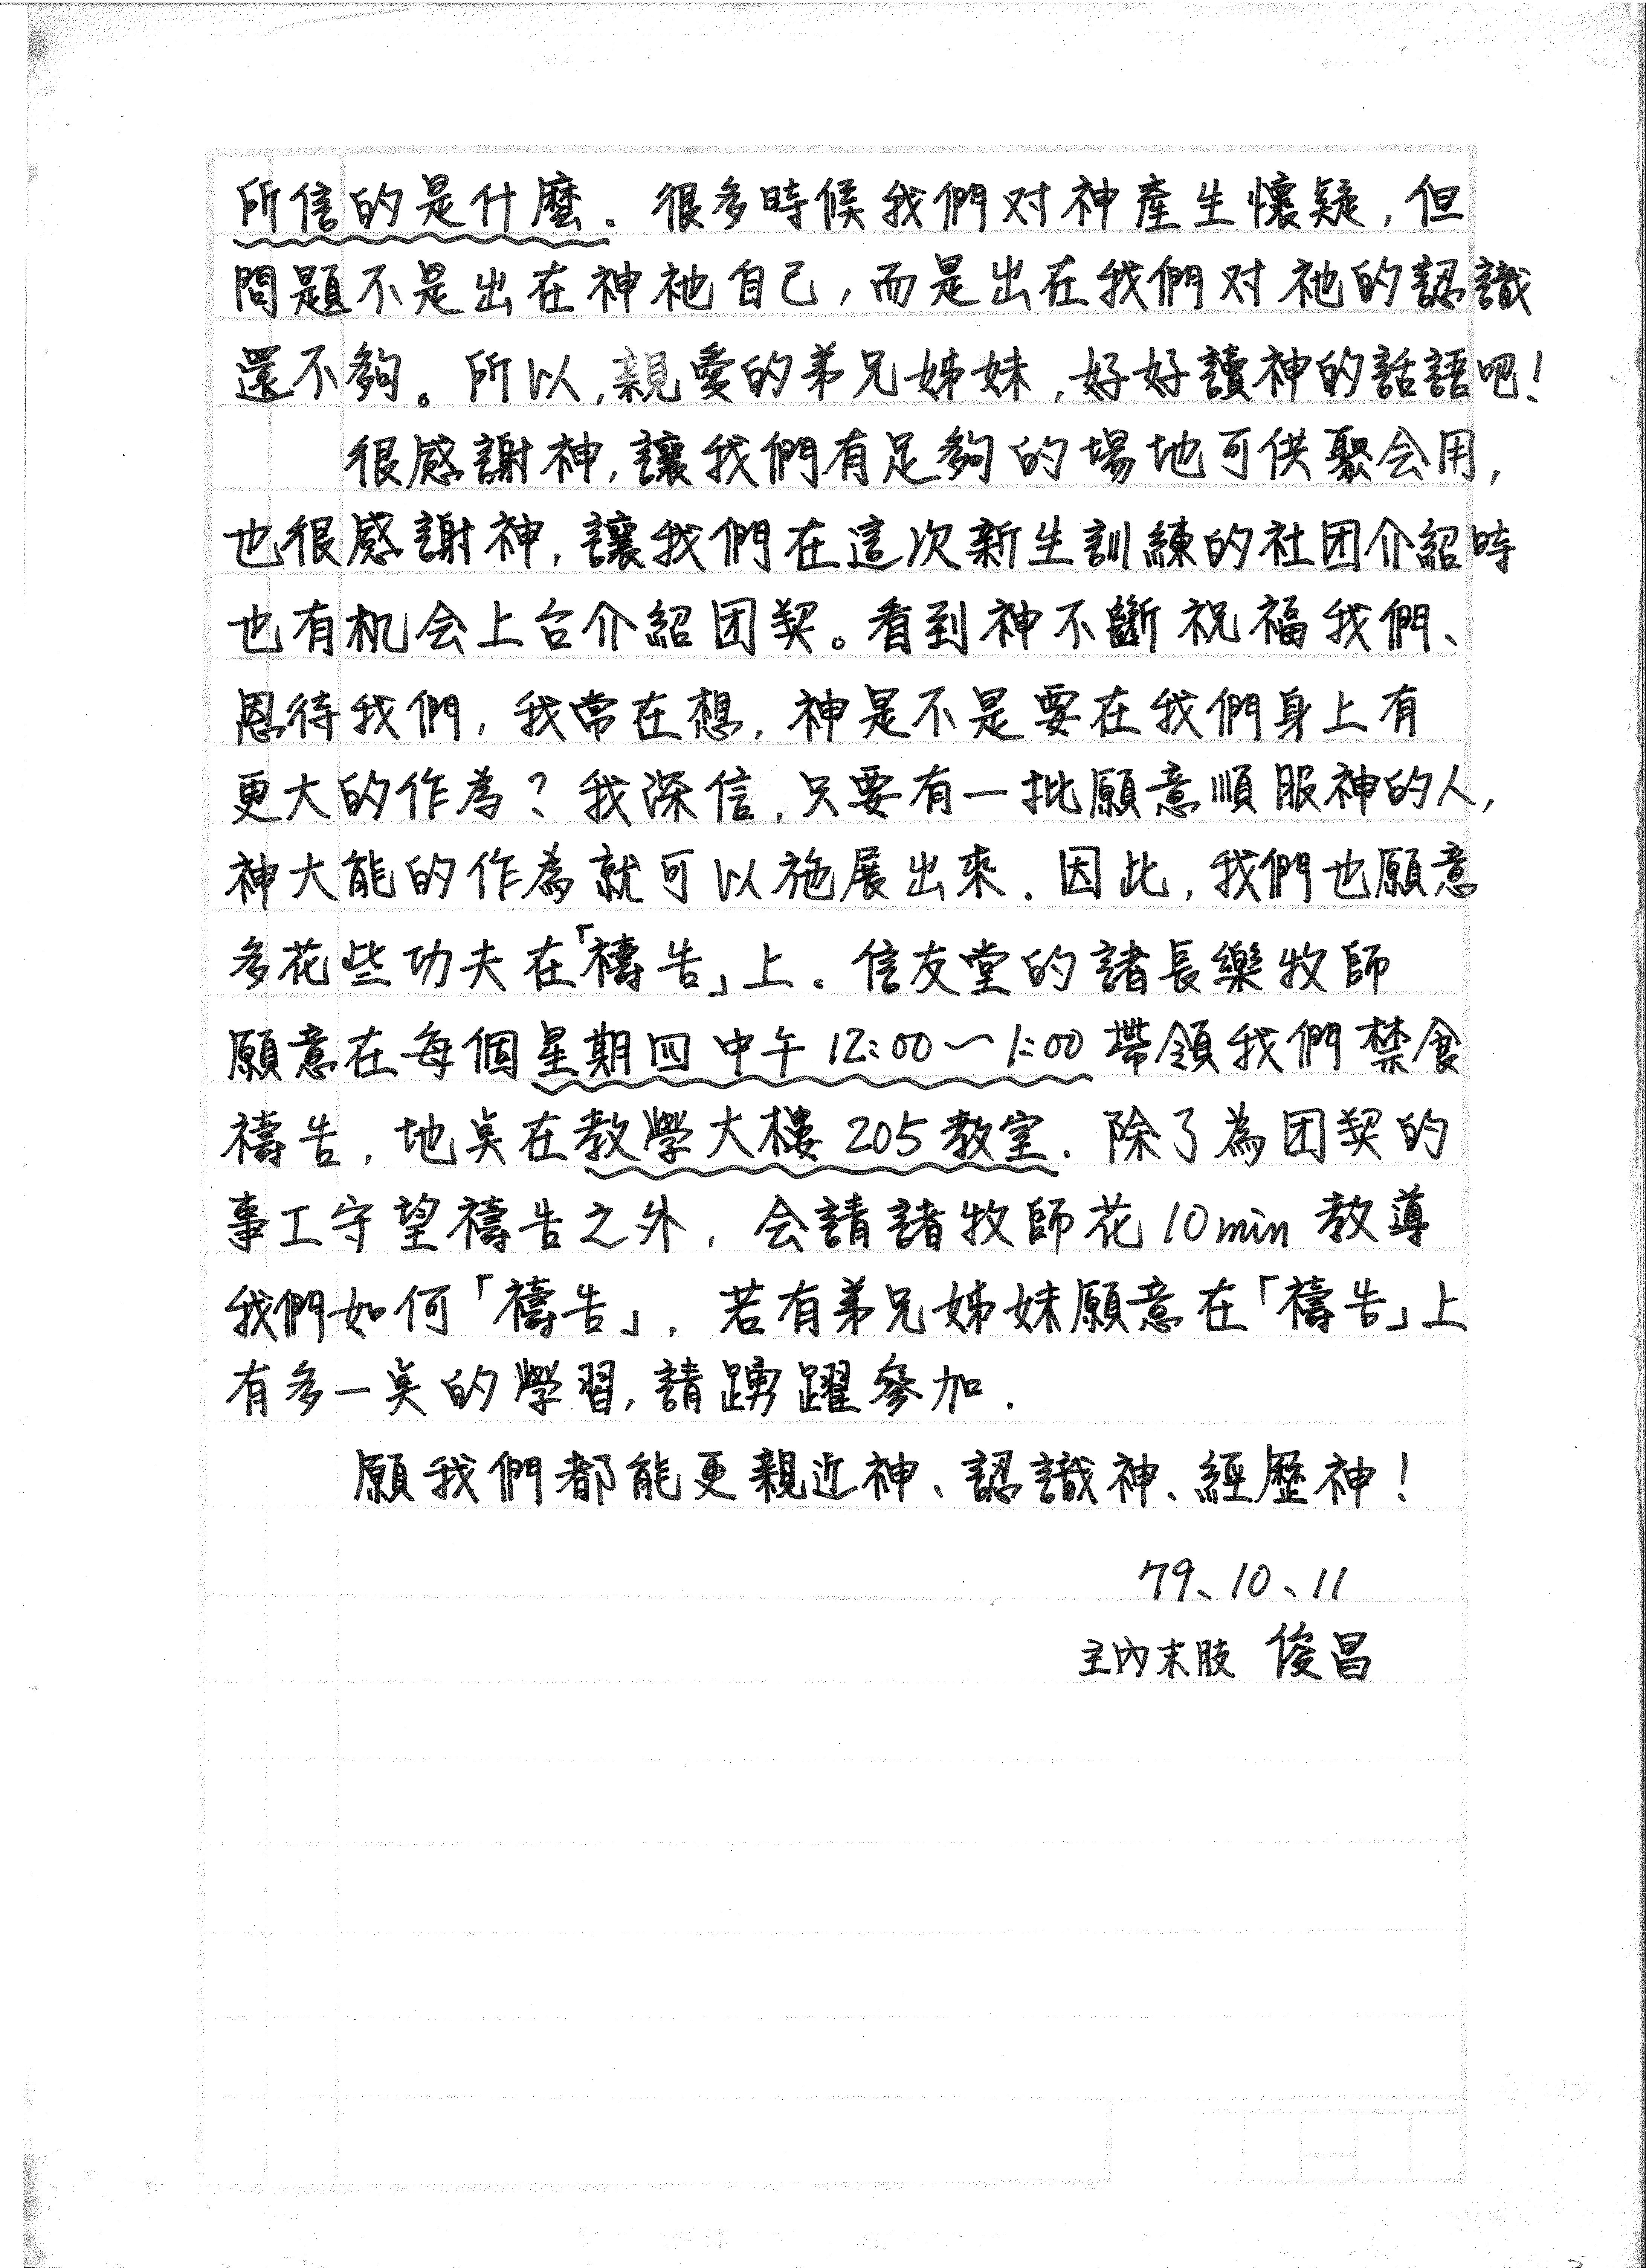 所信的是什麼. 很多時候我們对神產生懷疑, 但
問題不是出在神祂自己, 而是出在我們对祂的認識
還不夠。所以, 親愛的弟兄姊妹, 好好讀神的話語吧!
很感謝神, 讓我們有足夠的場地可供聚会用,
也很感謝神, 讓我們在這次新生訓練的社团介紹時
也有机会上台介紹团契。看到神不斷祝福我們、
恩待我們, 我常在想, 神是不是要在我們身上有
更大的作為? 我深信, 只要有一批願意順服神的人,
神大能的作為就可以施展出來. 因此, 我們也願意
多花些功夫在「禱告」上. 信友堂的諸長樂牧師
願意在每個星期四中午12:00~1:00帶領我們禁食
禱告, 地奌在教學大樓205教室. 除了為团契的
事工守望禱告之外, 会請諸牧師花10min教導
我們如何「禱告」. 若有弟兄姊妹願意在「禱告」上
有多一奌的學習, 請踴躍參加.
願我們都能更親近神、認識神、經歷神!
79、10、11
主內末肢 俊昌